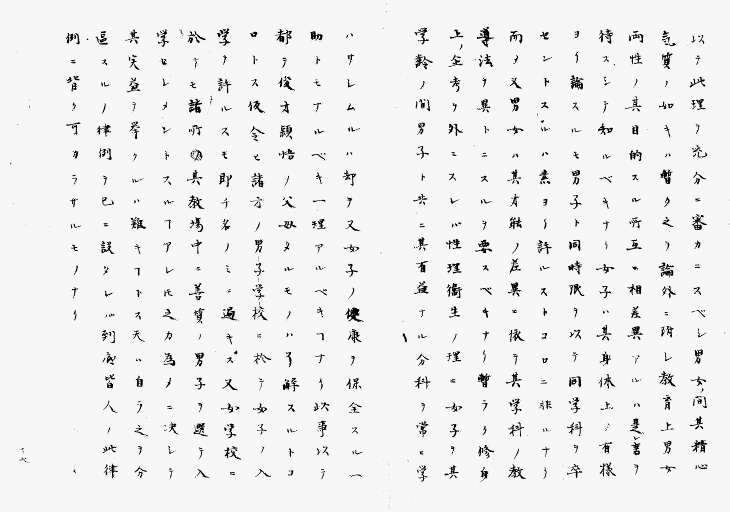 以テ此理ヲ充分ニ審カニスベシ男女ノ間其精心
気質ノ如キハ暫ク之ヲ論外ニ附シ教育上男女
両性ノ其目的スル所互ニ相差異アルハ是レ書ヲ
待スシテ知ルベキナリ女子ハ其身体上ノ有様
ヨリ論スルモ男子ト同時限ヲ以テ同学科ヲ卒
セントスルハ素ヨリ許ルストコロニ非ルナリ
而メ又男女ハ其才能ノ差異ニ依テ其学科ノ教
導法ヲ異トニスルヲ要スベキナリ暫ラク修身
上ノ企考ヲ外ニスレハ性理衛生ノ理ニ女子ヲ其
学齢ノ間男子ト共ニ其有益ナル分科ヲ常ニ学
ハサレムルハ却テ又女子ノ健康ヲ保全スル一
助トモナルベキ一理アルベキヿナリ此事以テ
都テ俊才穎悟ノ父母タルモノハ了解スルトコ
ロトス仮令ヒ諸方ノ男子学校ニ於テ女子ノ入
学ヲ許ルスモ即チ名ノミニ過キス又女学校ニ
於テモ諸所ノ其教場中ニ善質ノ男子ヲ選テ入
学セシメントスルヿアレ𪜈之カ為メニ決シテ
其実益ヲ挙クルハ難キヿトス天ハ自ラ之ヲ分
區スルノ律例ヲ已ニ設タレハ到底皆人ノ此律
例ニ背ク可カラサルモノナリ